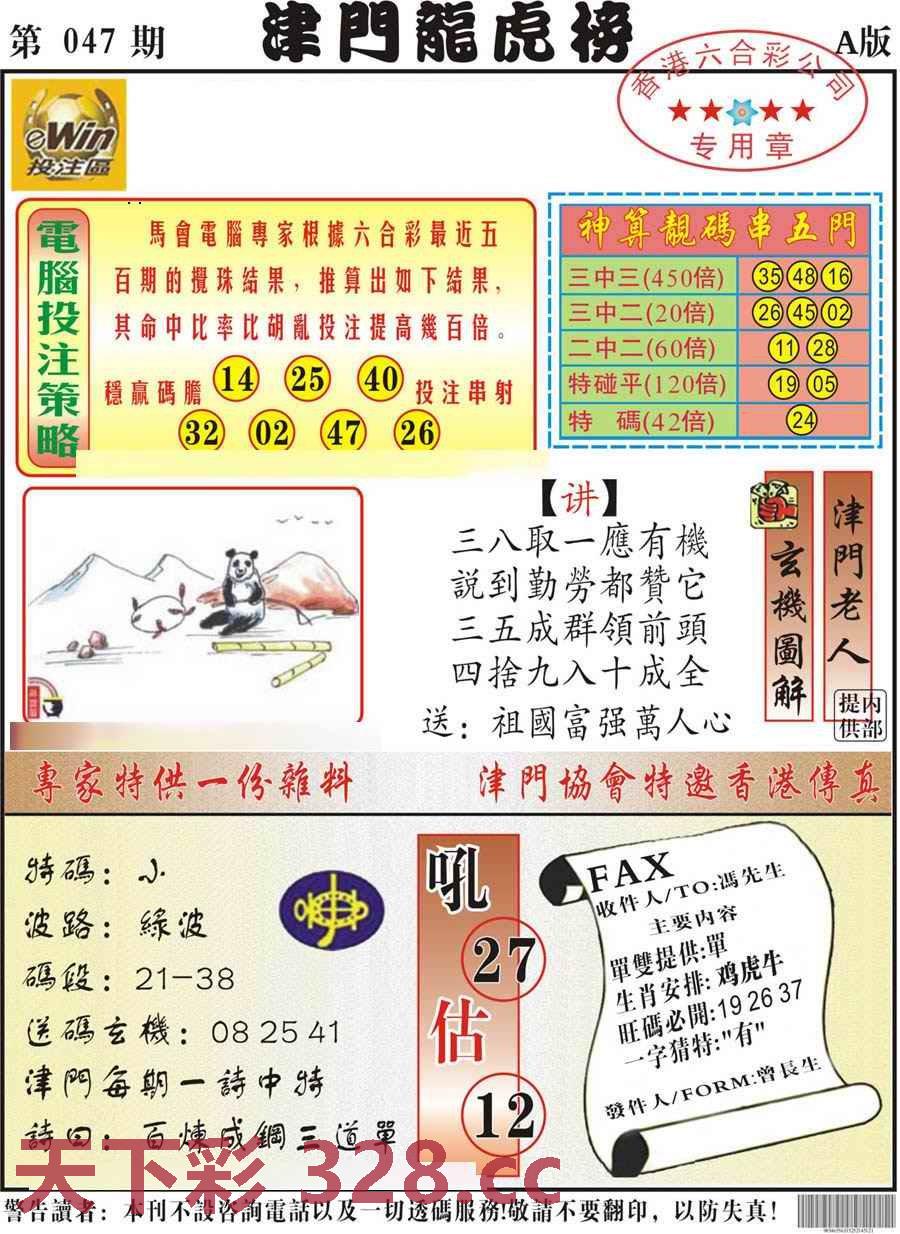 第 047 期
津門龍虎榜
A版
香港六合彩公司
专用章
eWin
投注區
電腦投注策略
馬會電腦專家根據六合彩最近五
百期的攪珠結果，推算出如下結果，
其命中比率比胡亂投注提高幾百倍。
穩贏碼膽 14 25 40 投注串射
32 02 47 26
神算靚碼串五門
三中三(450倍) 35 48 16
三中二(20倍) 26 45 02
二中二(60倍) 11 28
特碰平(120倍) 19 05
特 碼(42倍) 24
【讲】
三八取一應有機
説到勤勞都贊它
三五成群領前頭
四捨九入十成全
送：祖國富强萬人心
玄機圖解
津門老人
内部提供
專家特供一份雜料
津門協會特邀香港傳真
特碼：小
波路：綠波
碼段：21-38
送碼玄機：08 25 41
津門每期一詩中特
詩曰：百煉成鋼三道單
吼
27
估
12
FAX
收件人/TO:馮先生
主要内容
單雙提供:單
生肖安排: 鸡虎牛
旺碼必開:19 26 37
一字猜特:"有"
發件人/FORM:曾長生
天下彩 328.cc
警告讀者：本刊不設咨詢電話以及一切透碼服務!敬請不要翻印，以防失真！